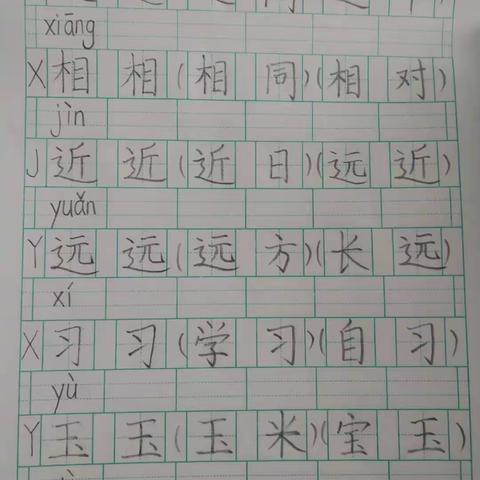 xiāng
X相 相(相 同)(相 对)
jìn
J近 近(近 日)(远 近)
yuǎn
Y远 远(远 方)(长 远)
xí
X习 习(学 习)(自 习)
yù
Y玉 玉(玉 米)(宝 玉)